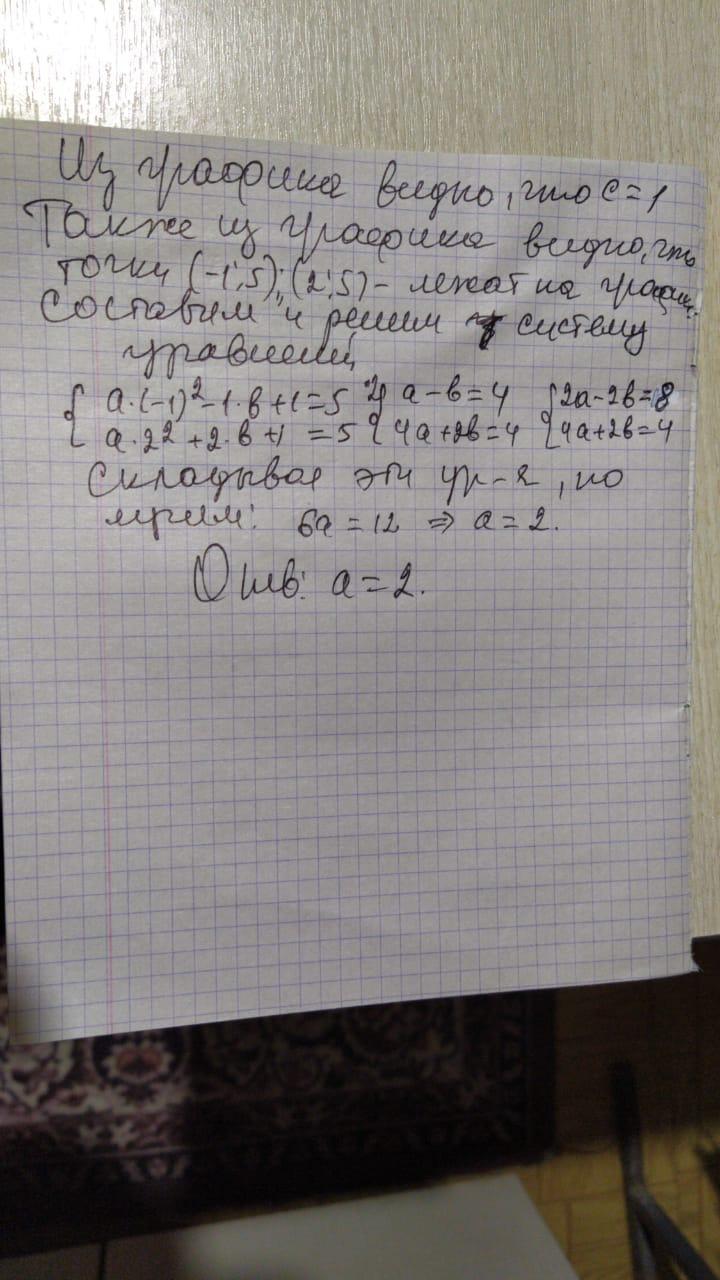 Из графика видно, что с=1
Также из графика видно, что
точки (-1;5);(2;5) - лежат на графике.
Составим и решим систему
уравнений
{ a·(-1)²-1·в+1=5 { a-в=4 {2a-2в=8
{ a·2²+2·в+1=5 { 4a+2в=4 {4a+2в=4
Складывая эти ур-я, по
лучим: 6a=12 ⇒ a=2.
Отв: a=2.